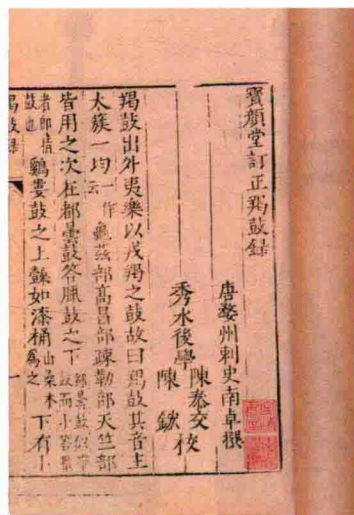 寶顏堂訂正羯鼓錄
唐婺州刺史南卓撰
秀水後學 陳泰交 校
陳 欽
羯鼓出外夷樂以戎羯之鼓故曰羯鼓其音主
太簇一均一作云龜茲部高昌部疎勒部天竺部
皆用之次在都曇鼓答臘鼓之下都曇鼓似
者即揩鼓也雞婁鼓之上䯨如漆桶山桑木為之下有
羯鼓錄 一